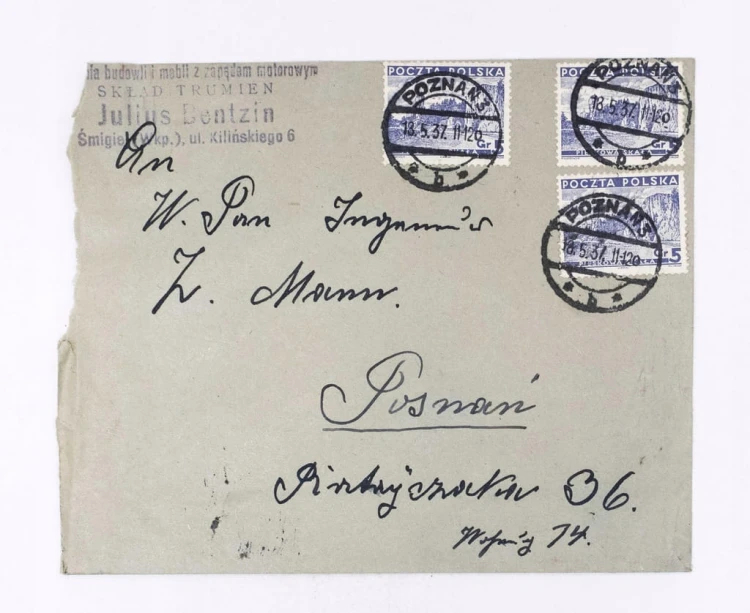 budowli i mebli z zapędem motorowym
SKŁAD TRUMIEN
Julius Bentzin
Śmigiel (Wkp.), ul. Kilińskiego 6
POCZTA POLSKA
Gr 5
POZNAŃ 3
18.5.37. 11-12
b
POCZTA POLSKA
Gr 5
POZNAŃ 3
18.5.37. 11-12
b
POCZTA POLSKA
Gr 5
POZNAŃ 3
18.5.37. 11-12
b
An
W. Pan
Z. Mann.
Posnań
36.
14.